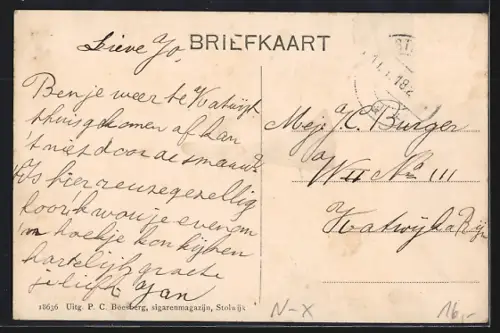 Lieve Jo,
BRIEFKAART
Ben je weer te Katwijk
thuisgekomen of kan
't niet door de sneeuw?
't Is hier reuzegezellig
hoor ik wou je even om
'n hoekje kon kijken
hartelijk groete
je liefh. Jan
Mej. J. C. Burger
a/ WII No. 111
Katwijk a. Rijn
18636 Uitg. P. C. Boesberg, sigarenmagazijn, Stolwijk
N-X
16,-